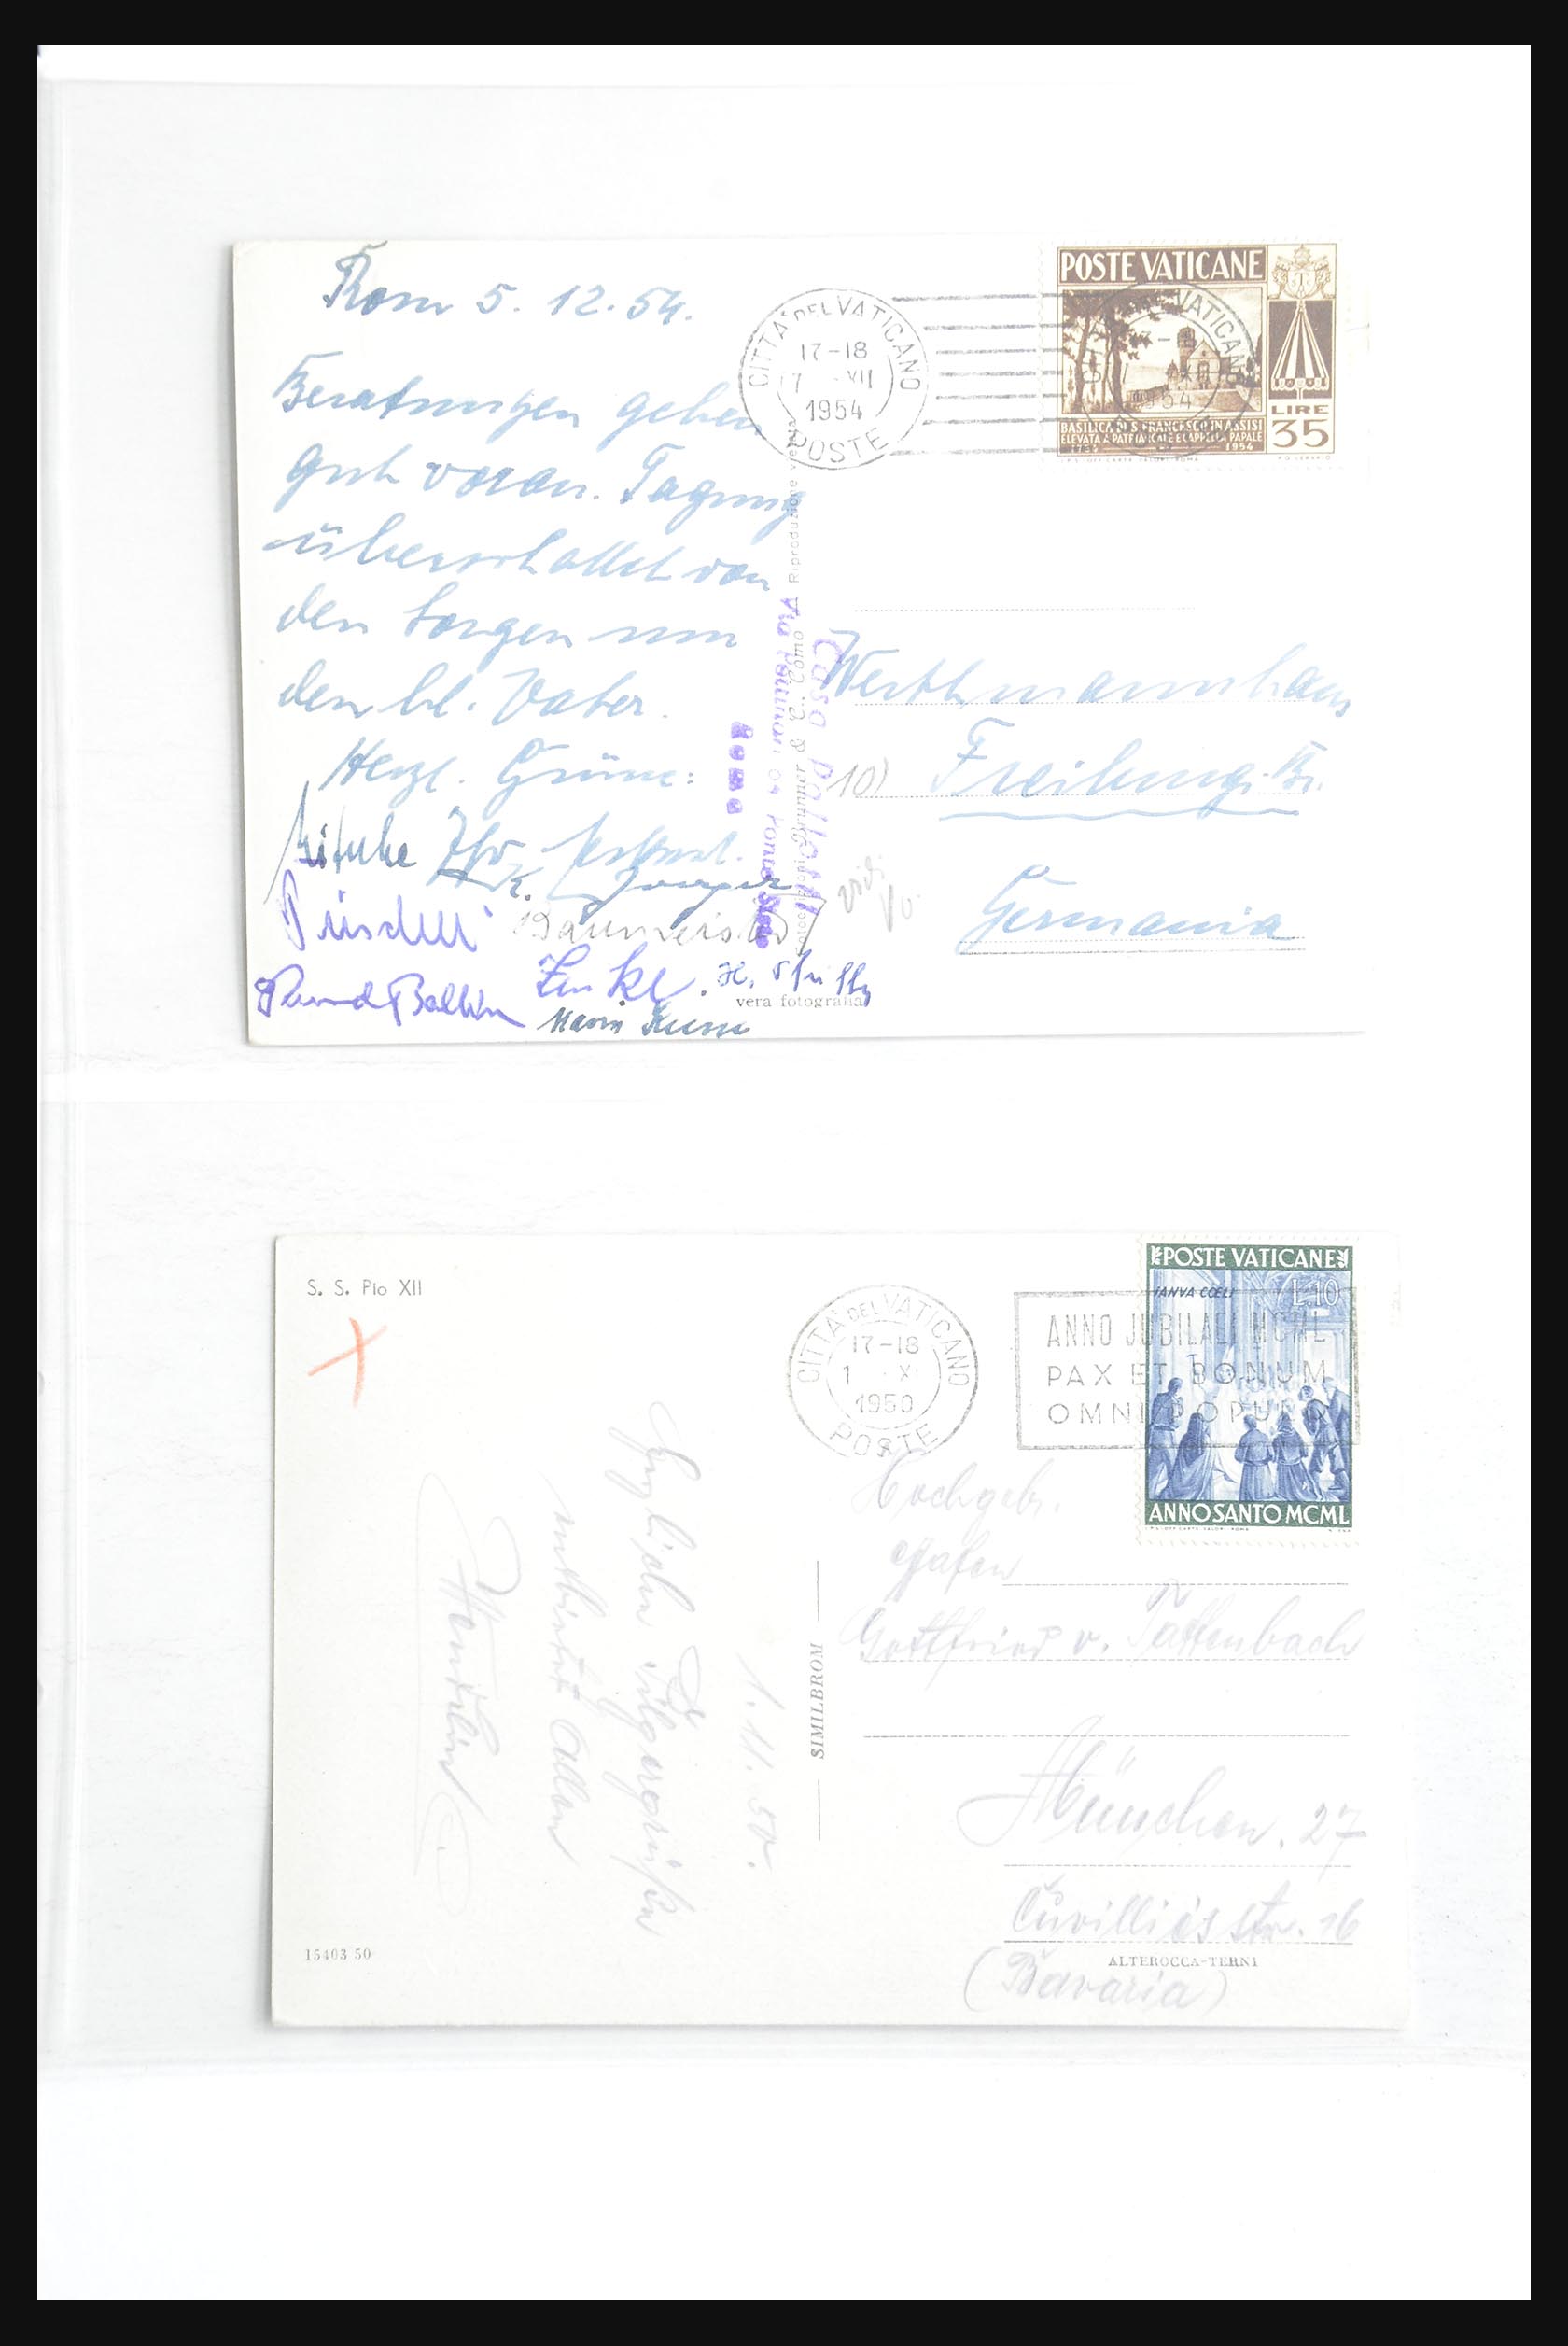 Rom 5. 12. 54.
Beratungen gehen
gut voran. Tagung
überschattet von
den Sorgen um
den hl. Vater.
Herzl. Grüsse:
Baumeister
Zinke.
CITTA DEL VATICANO
17-18
7 XII
1954
POSTE
POSTE VATICANE
BASILICA DI S. FRANCESCO IN ASSISI
ELEVATA A PATRIARCALE E CAPPELLA PAPALE
1754 1954
LIRE
35
Riproduzione vietata
Brunner & C., Como
Casa Pallotti
Roma
vera fotografia
Werthmannhaus
Freiburg. Br.
Germania
S. S. Pio XII
CITTA DEL VATICANO
17-18
1 XI
1950
POSTE
ANNO JUBILAEI MCML
PAX ET BONUM
OMNI POPULO
POSTE VATICANE
IANVA COELI
L.10
ANNO SANTO MCML
1. 11. 50.
Herzliche Pilgergrüße
Allen
SIMILBROM
Hochgeb.
Grafen
Gottfried v. Tattenbach
München. 27
Cuvilliésstr. 16
(Bavaria)
15403 50
ALTEROCCA-TERNI